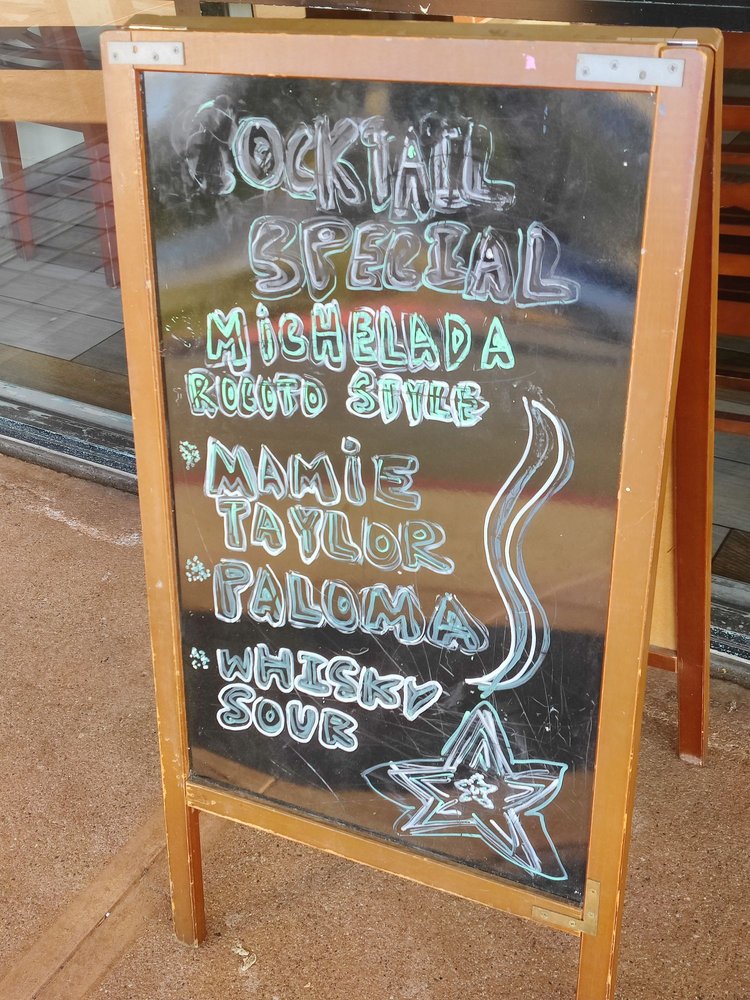 COCKTAIL
SPECIAL
MiCHELADA
ROCOTO STYLE
* MAMiE
TAYLOR
* PALOMA
* WHISKY
SOUR